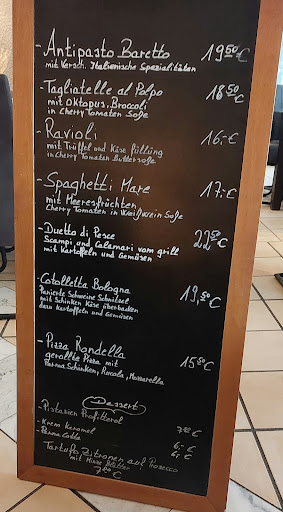 - Antipasto Baretto 19,50 €
mit Versch. Italienische Spezialitäten
- Tagliatelle al Polpo 18,50 €
mit Oktopus, Broccoli
in Cherry Tomaten Soße
- Ravioli 16,- €
mit Trüffel und Käse füllung
in Cherry Tomaten Buttersoße
- Spaghetti Mare 17,- €
mit Meeresfrüchten,
Cherry Tomaten in Weißwein Soße
- Duetto di Pesce 22,50 €
Scampi und Calamari vom grill
mit Kartoffeln und Gemüsen
- Cotolletta Bologna 19,50 €
Panierte Schweine Schnitzel
mit Schinken Käse überbacken
dazu Kartoffeln und Gemüsen
- Pizza Rondella 15,50 €
gerollte Pizza mit
Parma Schinken, Rucola, Mozzarella
Dessert
- Pistazien Profitterol 7,00 €
- Krem Karamel 6,- €
- Panna Cotta 6,- €
Tartufo Zitronen auf Prosecco
mit Minze Blätter 7,00 €